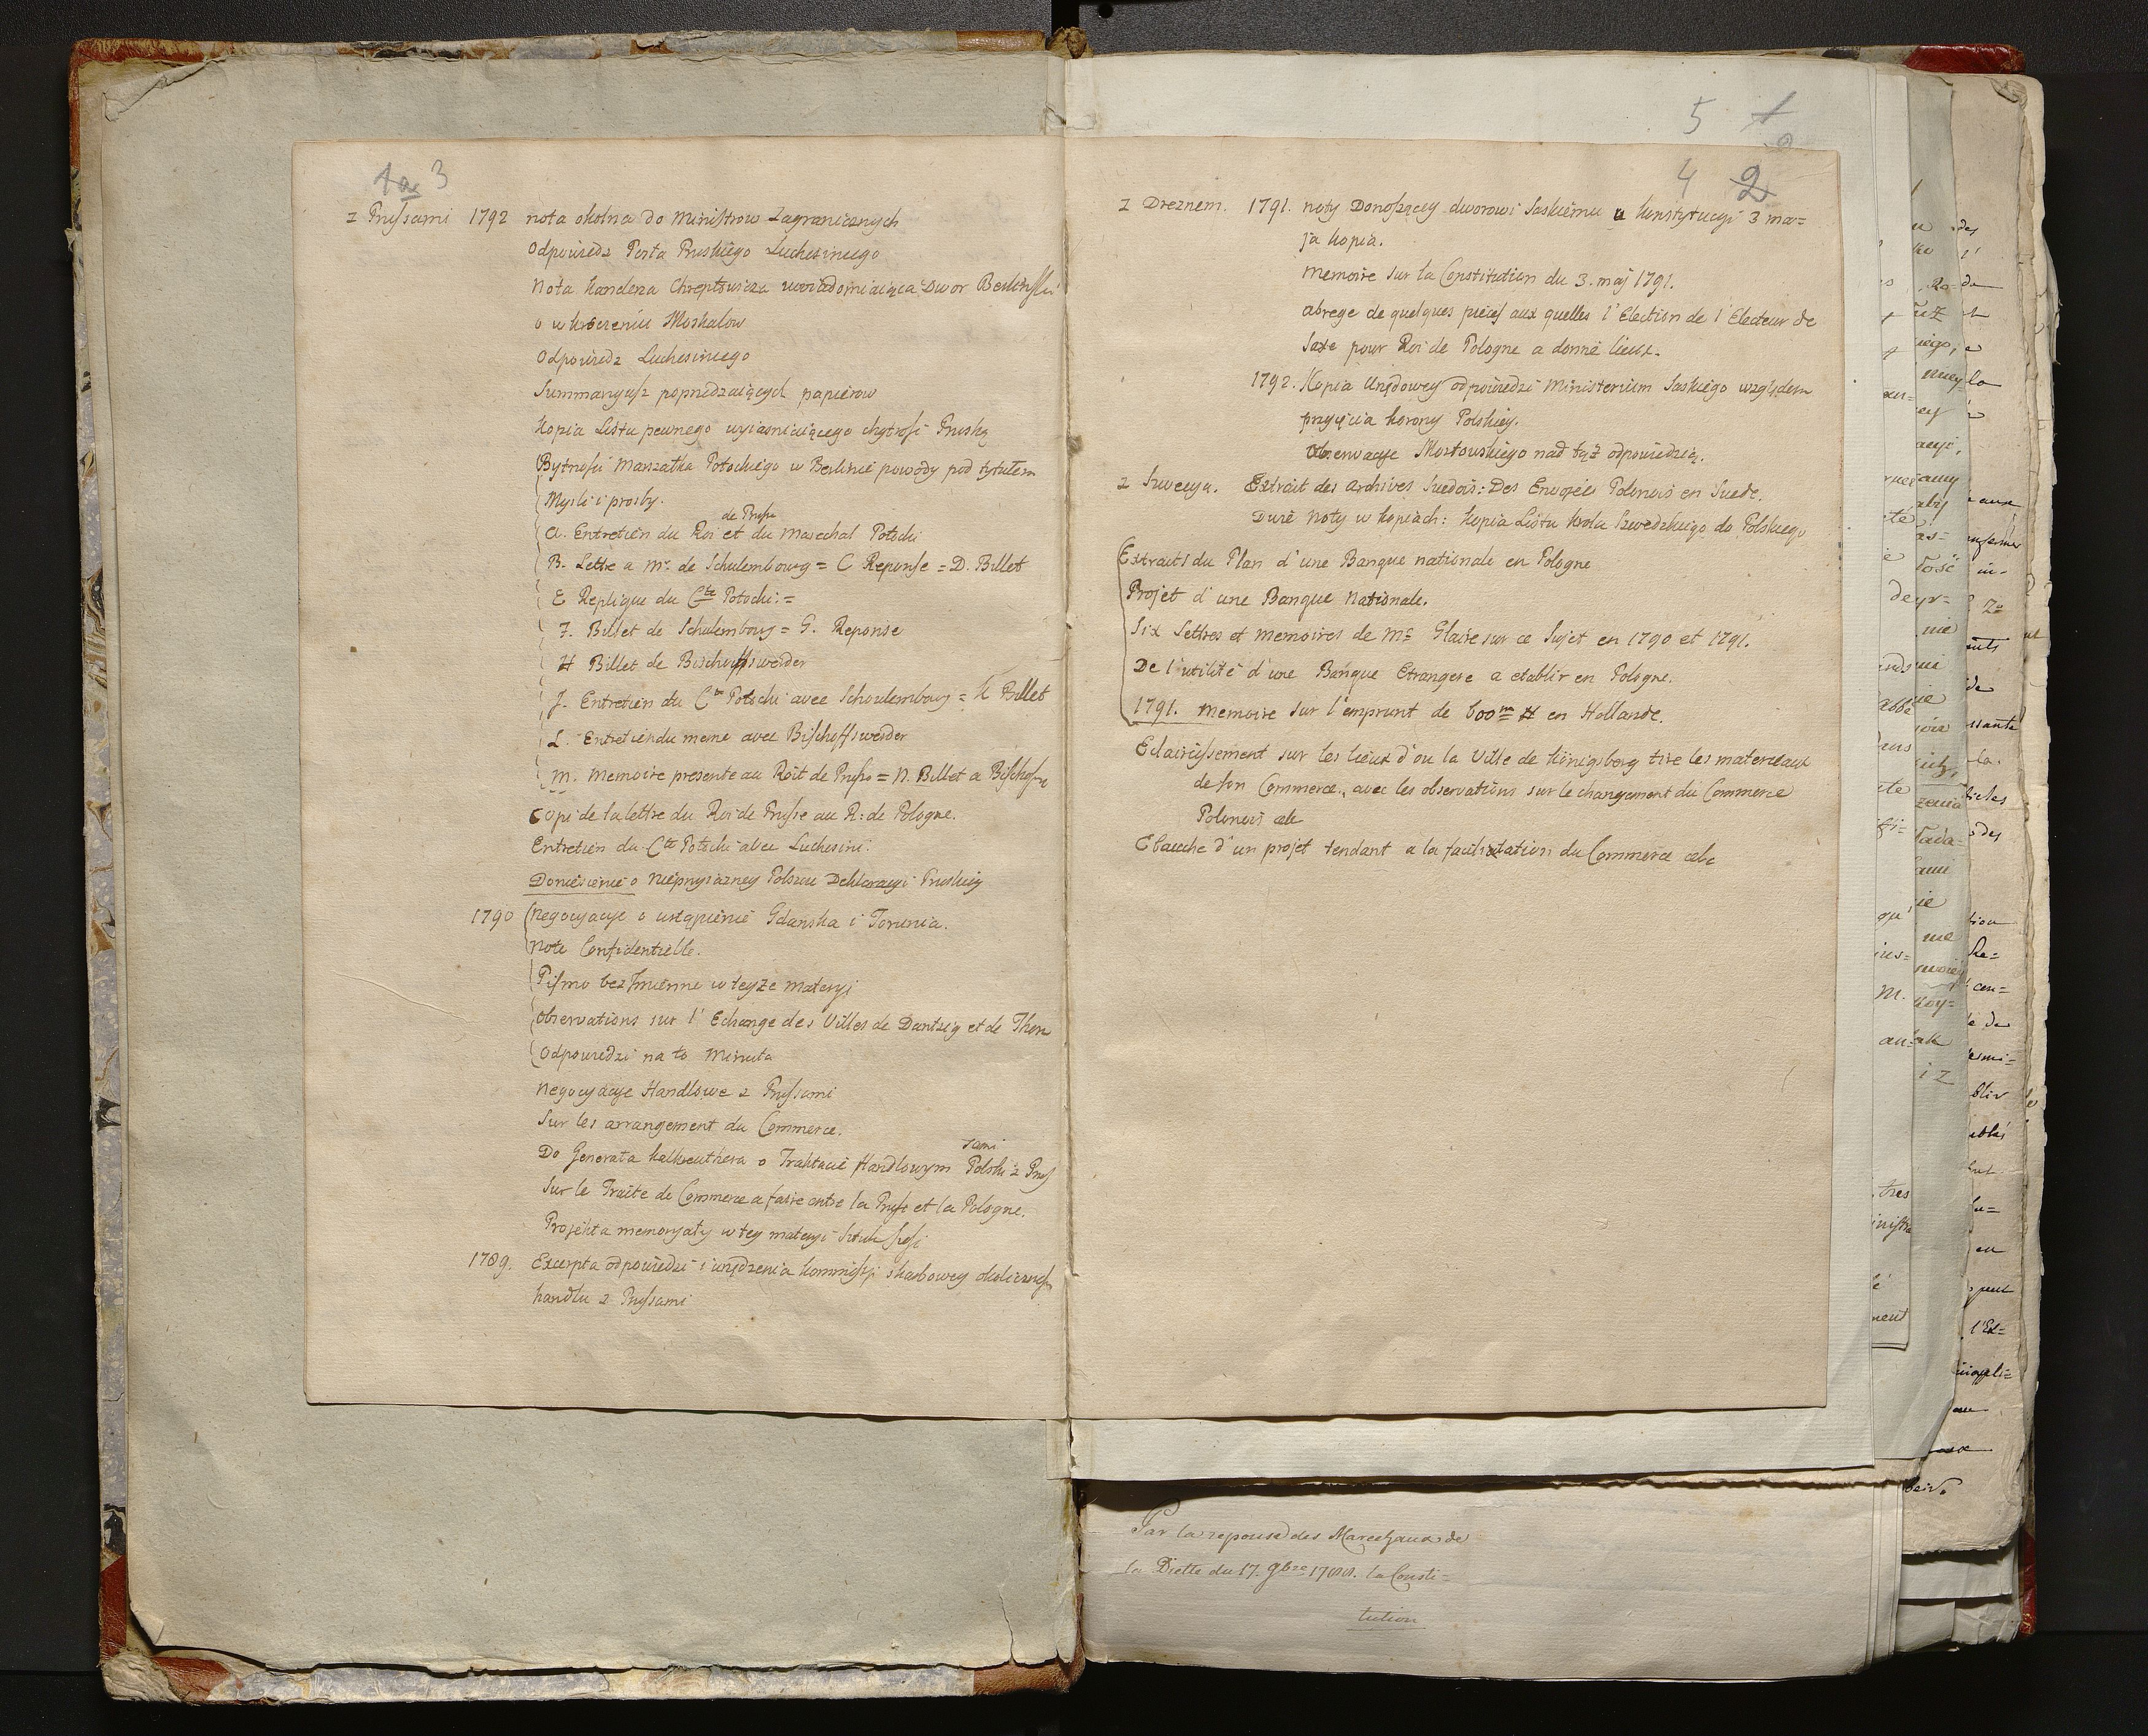 1a 3
z Prussami 1792 nota okolna do Ministrow Zagranicznych
Odpowiedz Posta Pruskiego Luchesiniego
Nota Kanclerza Chreptowicza uwiadomiaiąca Dwor Berlinski
o wkroczeniu Moskalow
Odpowiedz Luchesiniego
Summaryusz poprzedzaiących papierow
Kopia Listu pewnego wyiasniaiącego chytrość Pruską
Bytności Marszałka Potockiego w Berlinie powody pod tytułem
Mysli i prosby.
de Prusse
A. Entretien du Roi et du Marechal Potocki
B. Lettre a Mr. de Schulembourg = C Reponse = D. Billet
E Replique du Cte Potocki =
F. Billet de Schulembourg = G. Reponse
H Billet de Bischoffswerder
J. Entretien du Cte Potocki avec Schoulembourg = K Billet
L. Entretien du meme avec Bischoffswerder
M. Memoire presente au Roit de Prusse = N. Billet a
Copi de la lettre du Roi de Prusse au R: de Pologne.
Entretien du Cte Potocki avec Luchesini.
Doniesienie o nieprzyiazney Polszcze Deklaracyi Pruskiey
1790 Negocyacye o ustąpienie Gdanska i Torunia.
Note Confidentielle.
Pismo bezImienne w teyże materyi
Observations sur l'Echange des Villes de Dantzig et de Thorn
Odpowiedzi na to Minuta
Negocyacye Handlowe z Prussami
Sur les arrangement du Commerce.
sami
Do Generała Kalkreuthera o Traktacie Handlowym Polski z Prus
Sur le Traité de Commerce a faire entre la Prusse et la Pologne.
Projekta memoryały w tey materyi Sztuk
1789. Excerpta odpowiedzi i urządzenia Kommissyi skarbowey
handlu z Prussami
5 1
4 2
z Dreznem. 1791. noty Donoszącey dworowi Saskiemu o Konstytucyi 3 ma=
ja kopia.
Memoire sur la Constitution du 3. maj 1791.
abrege de quelques pieces aux quelles l'Election de l'Electeur de
Saxe pour Roi de Pologne a donné lieux.
1792. Kopia Urzędowey odpowiedzi Ministerium Saskiego względem
przyięcia korony Polskiey.
Observacye Mostowskiego nad tąż odpowiedzią.
z Szwecyą. Extrait des archives Suedois: Des Envoyées Polonois en Suede.
Dwie Noty w kopiach: Kopia Listu Krola Szwedzkiego do Polskiego
Extraits du Plan d'une Banque nationale en Pologne
Projet d'une Banque Nationale.
Six Lettres et memoires de Mr Glaire sur ce Sujet en 1790 et 1791.
De l'utilité d'une Banque Etrangere a etablir en Pologne.
1791. Memoire sur l'emprunt de 600m # en Hollande.
Eclaircissement sur les lieux d'ou la Ville de Königsberg tire les materieaux
de son Commerce, avec les observations sur le changement du Commerce
Polonois etc
Ebauche d'un projet tendant a la facilitation du Commerce etc
Par la reponse des Marechaux de
la Diette du 17. 9bre 1788. la Consti=
tution